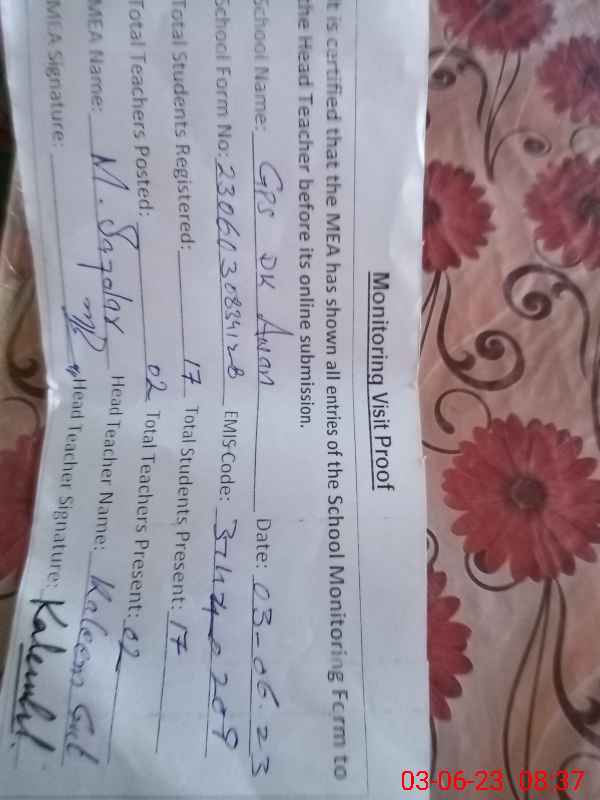 Monitoring Visit Proof
It is certified that the MEA has shown all entries of the School Monitoring Form to
the Head Teacher before its online submission.
School Name: GPS DK Awan Date: 03-06-23
School Form No: EMIS Code:
Total Students Registered: 17 Total Students Present: 17
Total Teachers Posted: 02 Total Teachers Present: 02
MEA Name: M. Head Teacher Name: Kaleem Gul
MEA Signature: Head Teacher Signature:
03-06-23 08:37